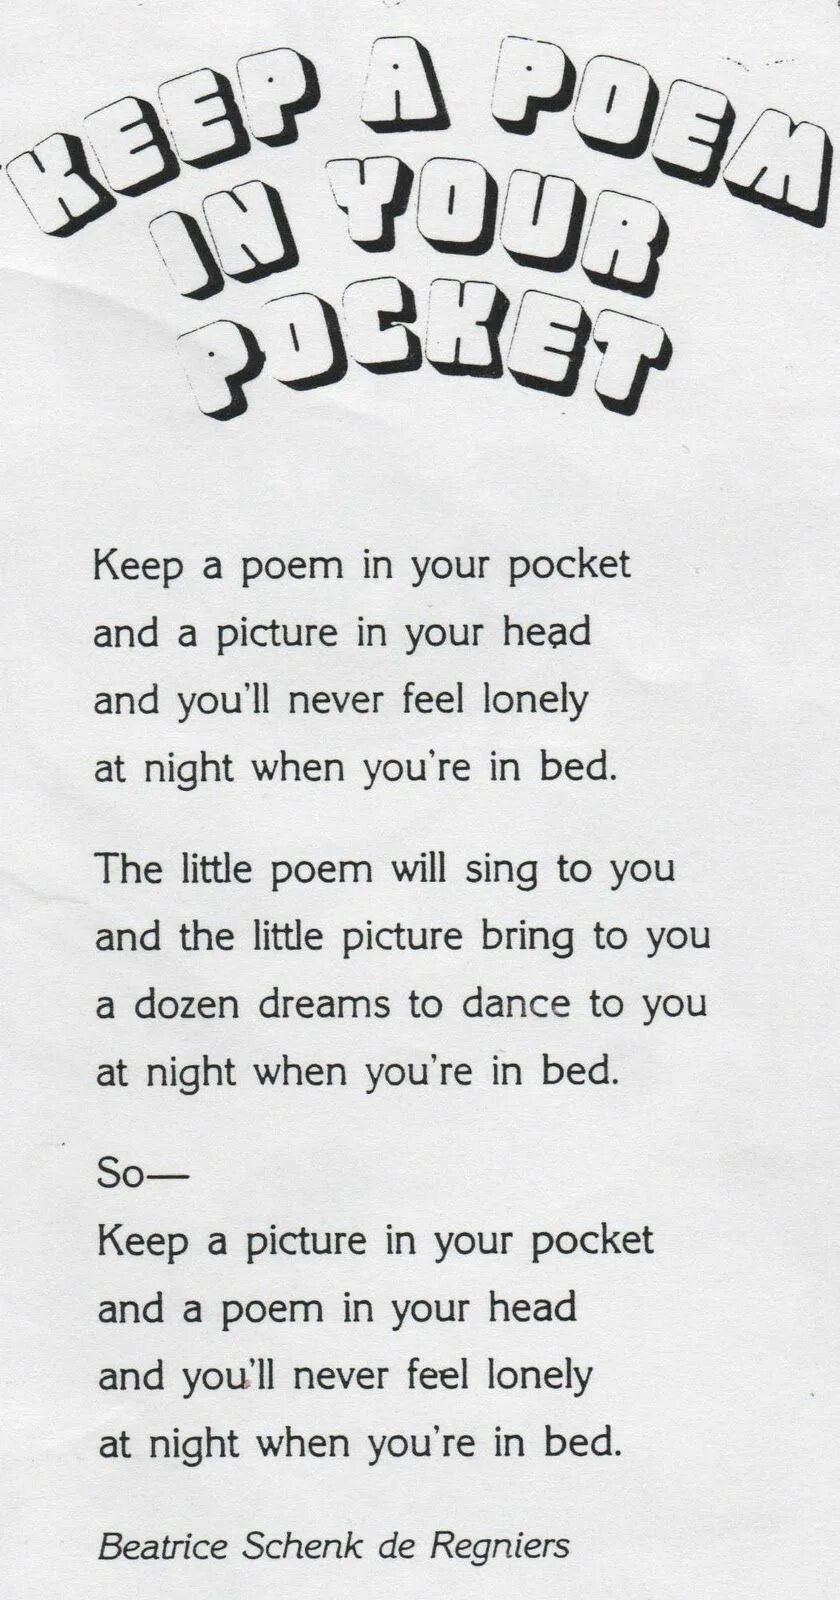 KEEP A POEM
IN YOUR
POCKET
Keep a poem in your pocket
and a picture in your head
and you'll never feel lonely
at night when you're in bed.
The little poem will sing to you
and the little picture bring to you
a dozen dreams to dance to you
at night when you're in bed.
So—
Keep a picture in your pocket
and a poem in your head
and you'll never feel lonely
at night when you're in bed.
Beatrice Schenk de Regniers